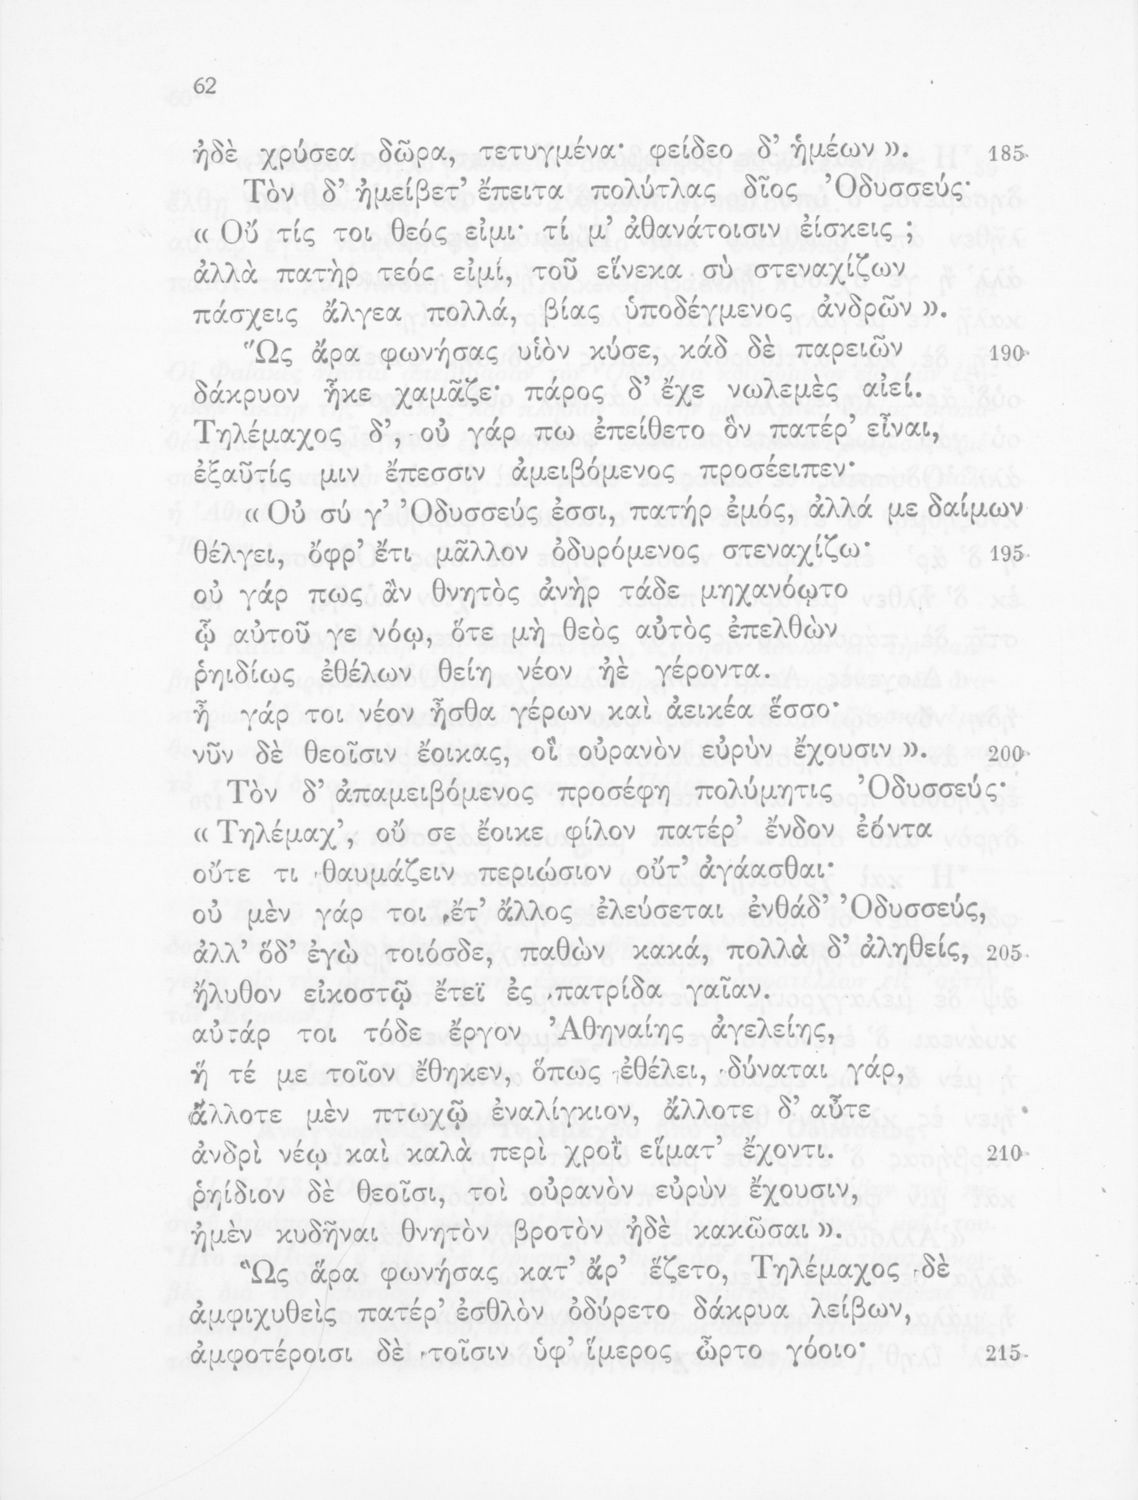 62
ἠδὲ χρύσεα δῶρα, τετυγμένα· φείδεο δ’ ἡμέων ». 185
Τὸν δ’ ἠμείβετ’ ἔπειτα πολύτλας δῖος Ὀδυσσεύς·
« Οὔ τίς τοι θεός εἰμι· τί μ’ ἀθανάτοισιν ἐίσκεις ;
ἀλλὰ πατὴρ τεός εἰμί, τοῦ εἵνεκα σὺ στεναχίζων
πάσχεις ἄλγεα πολλά, βίας ὑποδέγμενος ἀνδρῶν ».
Ὣς ἄρα φωνήσας υἱὸν κύσε, κάδ δὲ παρειῶν 190
δάκρυον ἧκε χαμᾶζε· πάρος δ’ ἔχε νωλεμὲς αἰεί.
Τηλέμαχος δ’, οὐ γάρ πω ἐπείθετο ὃν πατέρ’ εἶναι,
ἐξαῦτίς μιν ἔπεσσιν ἀμειβόμενος προσέειπεν·
« Οὐ σύ γ’ Ὀδυσσεύς ἐσσι, πατήρ ἐμός, ἀλλά με δαίμων
θέλγει, ὄφρ’ ἔτι μᾶλλον ὀδυρόμενος στεναχίζω· 195
οὐ γάρ πως ἂν θνητὸς ἀνὴρ τάδε μηχανόῳτο
ᾧ αὐτοῦ γε νόῳ, ὅτε μὴ θεὸς αὐτὸς ἐπελθὼν
ῥηιδίως ἐθέλων θείη νέον ἠὲ γέροντα.
ἦ γάρ τοι νέον ἦσθα γέρων καὶ ἀεικέα ἕσσο·
νῦν δὲ θεοῖσιν ἔοικας, οἳ οὐρανὸν εὐρὺν ἔχουσιν ». 200
Τὸν δ’ ἀπαμειβόμενος προσέφη πολύμητις Ὀδυσσεύς·
« Τηλέμαχ’, οὔ σε ἔοικε φίλον πατέρ’ ἔνδον ἐόντα
οὔτε τι θαυμάζειν περιώσιον οὔτ’ ἀγάασθαι·
οὐ μὲν γάρ τοι ἔτ’ ἄλλος ἐλεύσεται ἐνθάδ’ Ὀδυσσεύς,
ἀλλ’ ὅδ’ ἐγὼ τοιόσδε, παθὼν κακά, πολλὰ δ’ ἀληθείς, 205
ἤλυθον εἰκοστῷ ἔτεϊ ἐς πατρίδα γαῖαν.
αὐτάρ τοι τόδε ἔργον Ἀθηναίης ἀγελείης,
ἥ τέ με τοῖον ἔθηκεν, ὅπως ἐθέλει, δύναται γάρ,
ἄλλοτε μὲν πτωχῷ ἐναλίγκιον, ἄλλοτε δ’ αὖτε
ἀνδρὶ νέῳ καὶ καλὰ περὶ χροῒ εἵματ’ ἔχοντι. 210
ῥηίδιον δὲ θεοῖσι, τοὶ οὐρανὸν εὐρὺν ἔχουσιν,
ἠμὲν κυδῆναι θνητὸν βροτὸν ἠδὲ κακῶσαι ».
Ὣς ἄρα φωνήσας κατ’ ἄρ’ ἕζετο, Τηλέμαχος δὲ
ἀμφιχυθεὶς πατέρ’ ἐσθλὸν ὀδύρετο δάκρυα λείβων,
ἀμφοτέροισι δὲ τοῖσιν ὑφ’ ἵμερος ὦρτο γόοιο· 215